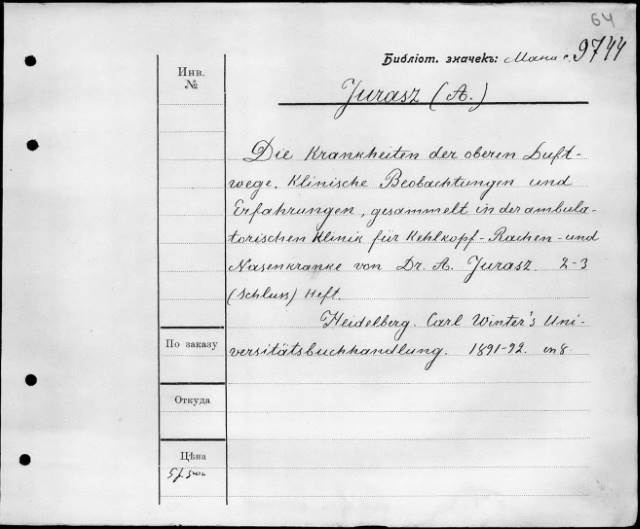 64
Библiот. значекъ: Мана 9744
Инв.
№
Jurasz (A.)
Die Krankheiten der oberen Luft-
wege. Klinische Beobachtungen und
Erfahrungen, gesammelt in der ambula-
torischen Klinik für Kehlkopf-Rachen-und
Nasenkranke von Dr. A. Jurasz. 2-3
(Schluss) Heft.
Heidelberg. Carl Winter's Uni-
По заказу
versitätsbuchhandlung. 1891-92. in 8
Откуда
Цѣна